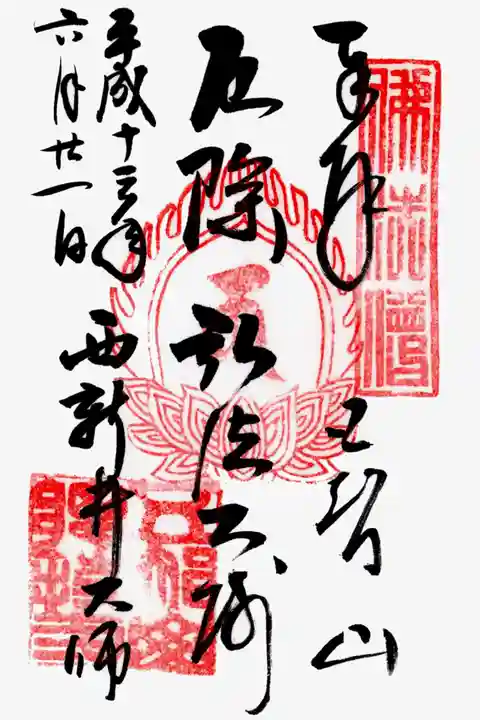 奉拝 五智山
佛法僧
厄除 弘法大師
平成十三年
六月廿一日 西新井大師